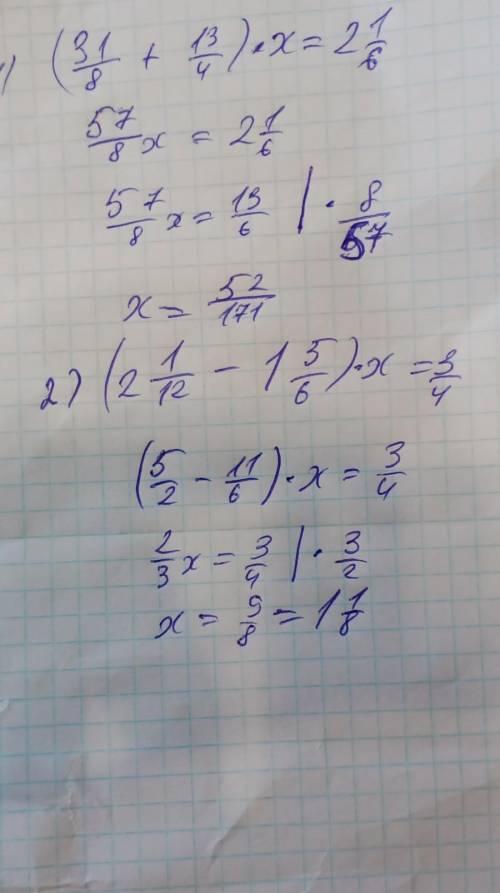 1) (31/8 + 13/4) · x = 2 1/6
57/8 x = 2 1/6
57/8 x = 13/6 | · 8/57
x = 52/171
2) (2 1/12 - 1 5/6) · x = 3/4
(5/2 - 11/6) · x = 3/4
2/3 x = 3/4 | · 3/2
x = 9/8 = 1 1/8